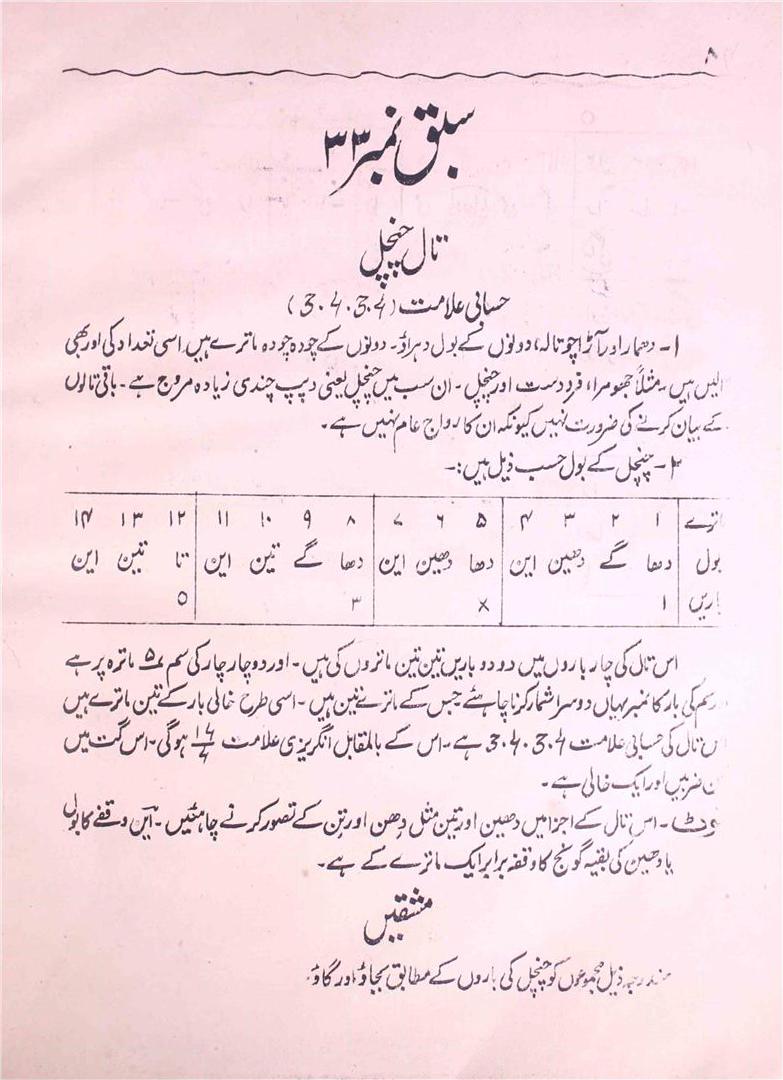 ۸
سبق نمبر ۳۳
تال چنچل
حسابی علامت (3.4.3.4)
۱- دھمار اور آڑا چوتالہ، دونوں کے بول دہراؤ۔ دونوں کے چودہ چودہ ماترے ہیں اسی تعداد کی اور بھی
ایسی ہیں۔ مثلاً جھومرا، فرددست اور چنچل۔ ان سب میں چنچل یعنی دیپ چندی زیادہ مروج ہے۔ باقی تالوں
کے بیان کرنے کی ضرورت نہیں کیونکہ ان کا رواج عام نہیں ہے۔
۲- چنچل کے بول حسب ذیل ہیں:-
ماترے ۱ ۲ ۳ ۴ ۵ ۶ ۷ ۸ ۹ ۱۰ ۱۱ ۱۲ ۱۳ ۱۴
بول دھا گے دھین این دھا دھین این دھا گے تین این تا تین این
باریں ۱ × ۳ ○
اس تال کی چار باروں میں دو دو باریں تین تین ماتروں کی ہیں۔ اور دو چار چار کی سم ۵ ماترہ پر ہے
سم کی بار کا نمبر یہاں دوسرا شمار کرنا چاہئے جس کے ماترے تین ہیں۔ اسی طرح خالی بار کے تین ماترے ہیں
اس تال کی حسابی علامت 3.4.3.4 ہے۔ اس کے بالمقابل انگریزی علامت ۱۴/۴ ہوگی۔ اس گت میں
تین ضربیں اور ایک خالی ہے۔
نوٹ۔ اس تال کے اجزا میں دھین اور تین مثل دِھن اور تِن کے تصور کرنے چاہئیں۔ این وقفے کا بول
یا دھین کی بقیہ گونج کا وقفہ برابر ایک ماترے کے ہے۔
مشقیں
مندرجہ ذیل مجموعوں کو چنچل کی باروں کے مطابق بجاؤ اور گاؤ۔